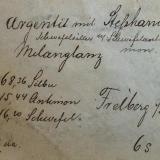 Argentit mit Stephan
Schwefelsilber m/ Schwefelant
Melanglanz mon
68,36 Silber
15 44 Antimon
16,20 Schwefel. Freiberg
6 s